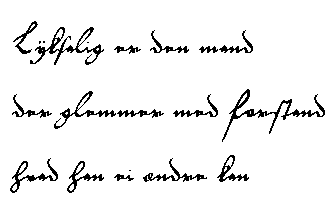 Lÿksalig er den mand
der glemmer med forstand
hvad han ei andre kan